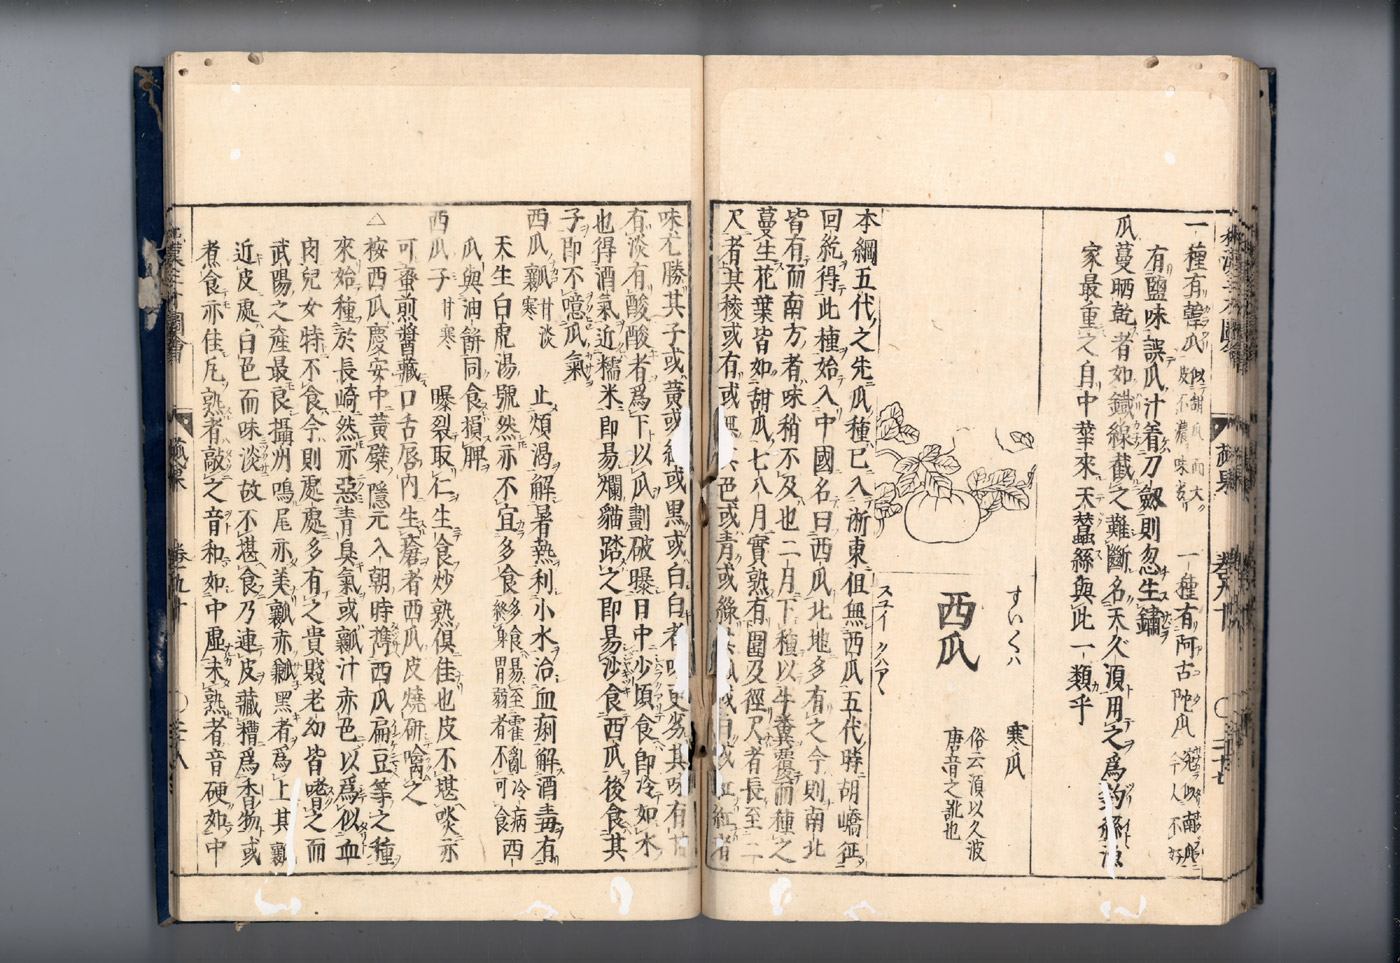 一種有韓瓜 似胡瓜而大皮不濃味劣 一種有阿古陀瓜
有鹽味誤瓜汁着刀劔則忽生鏽
瓜蔓晒乾者如鐵線截之難斷名天久須用之爲釣
家最重之自中華來天蠶絲與此一類乎
すいくハ 寒瓜
西瓜
俗云須以久波
唐音之訛也
スユイ クハアヽ
本綱五代之先瓜種已入浙東但無西瓜五代時胡嶠征
回紇得此種始入中國名曰西瓜北地多有之今則南北
皆有而南方者味稍不及也二月下種以牛糞覆而種之
蔓生花葉皆如甜瓜七八月實熟有圍及徑尺者長至二
尺者其稜或有或無其色或青或綠其瓤或白或紅紅者
味尤勝其子或黃或紅或黒或白白者味更劣其味有甘
有淡有酸酸者爲下以瓜劃破曝日中少頃食即冷如水
也得酒氣近糯米即易爛貓踏之即易沙食西瓜後食其
子即不噫瓜氣
西瓜瓤 甘淡寒 止煩渴解暑熱利小水治血痢解酒毒有
天生白虎湯號然亦不宜多食 多食易至霍亂冷病終身胃弱者不可食 西
瓜與油餅同食損脾
西瓜子 甘寒 曝裂取仁生食炒熟俱佳也皮不堪啖亦
可蜜煎醬藏口舌唇内生瘡者西瓜皮燒研噙之
△桉西瓜慶安中黃檗隱元入朝時携西瓜扁豆等之種
來始種於長崎然亦惡青臭氣或瓤汁赤色以爲似血
肉兒女特不食今則處處多有之貴賤老幼皆嗜之而
武陽之產最良攝州鳴尾亦美瓤赤瓤黑者爲上其瓤
近皮處白色而味淡故不堪食乃連皮藏糟爲香物或
煮食亦佳凡熟者敲之音和如中虛未熟者音硬如中